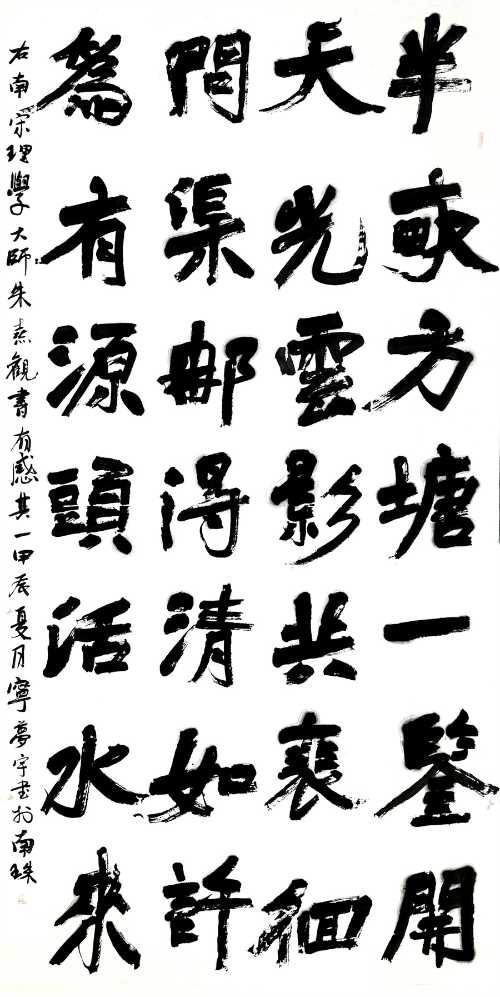 半畝方塘一鑒開
天光雲影共裵徊
問渠那得清如許
爲有源頭活水來
右南宋理學大師朱熹觀書有感其一甲辰夏月寧夢宇書於南珠